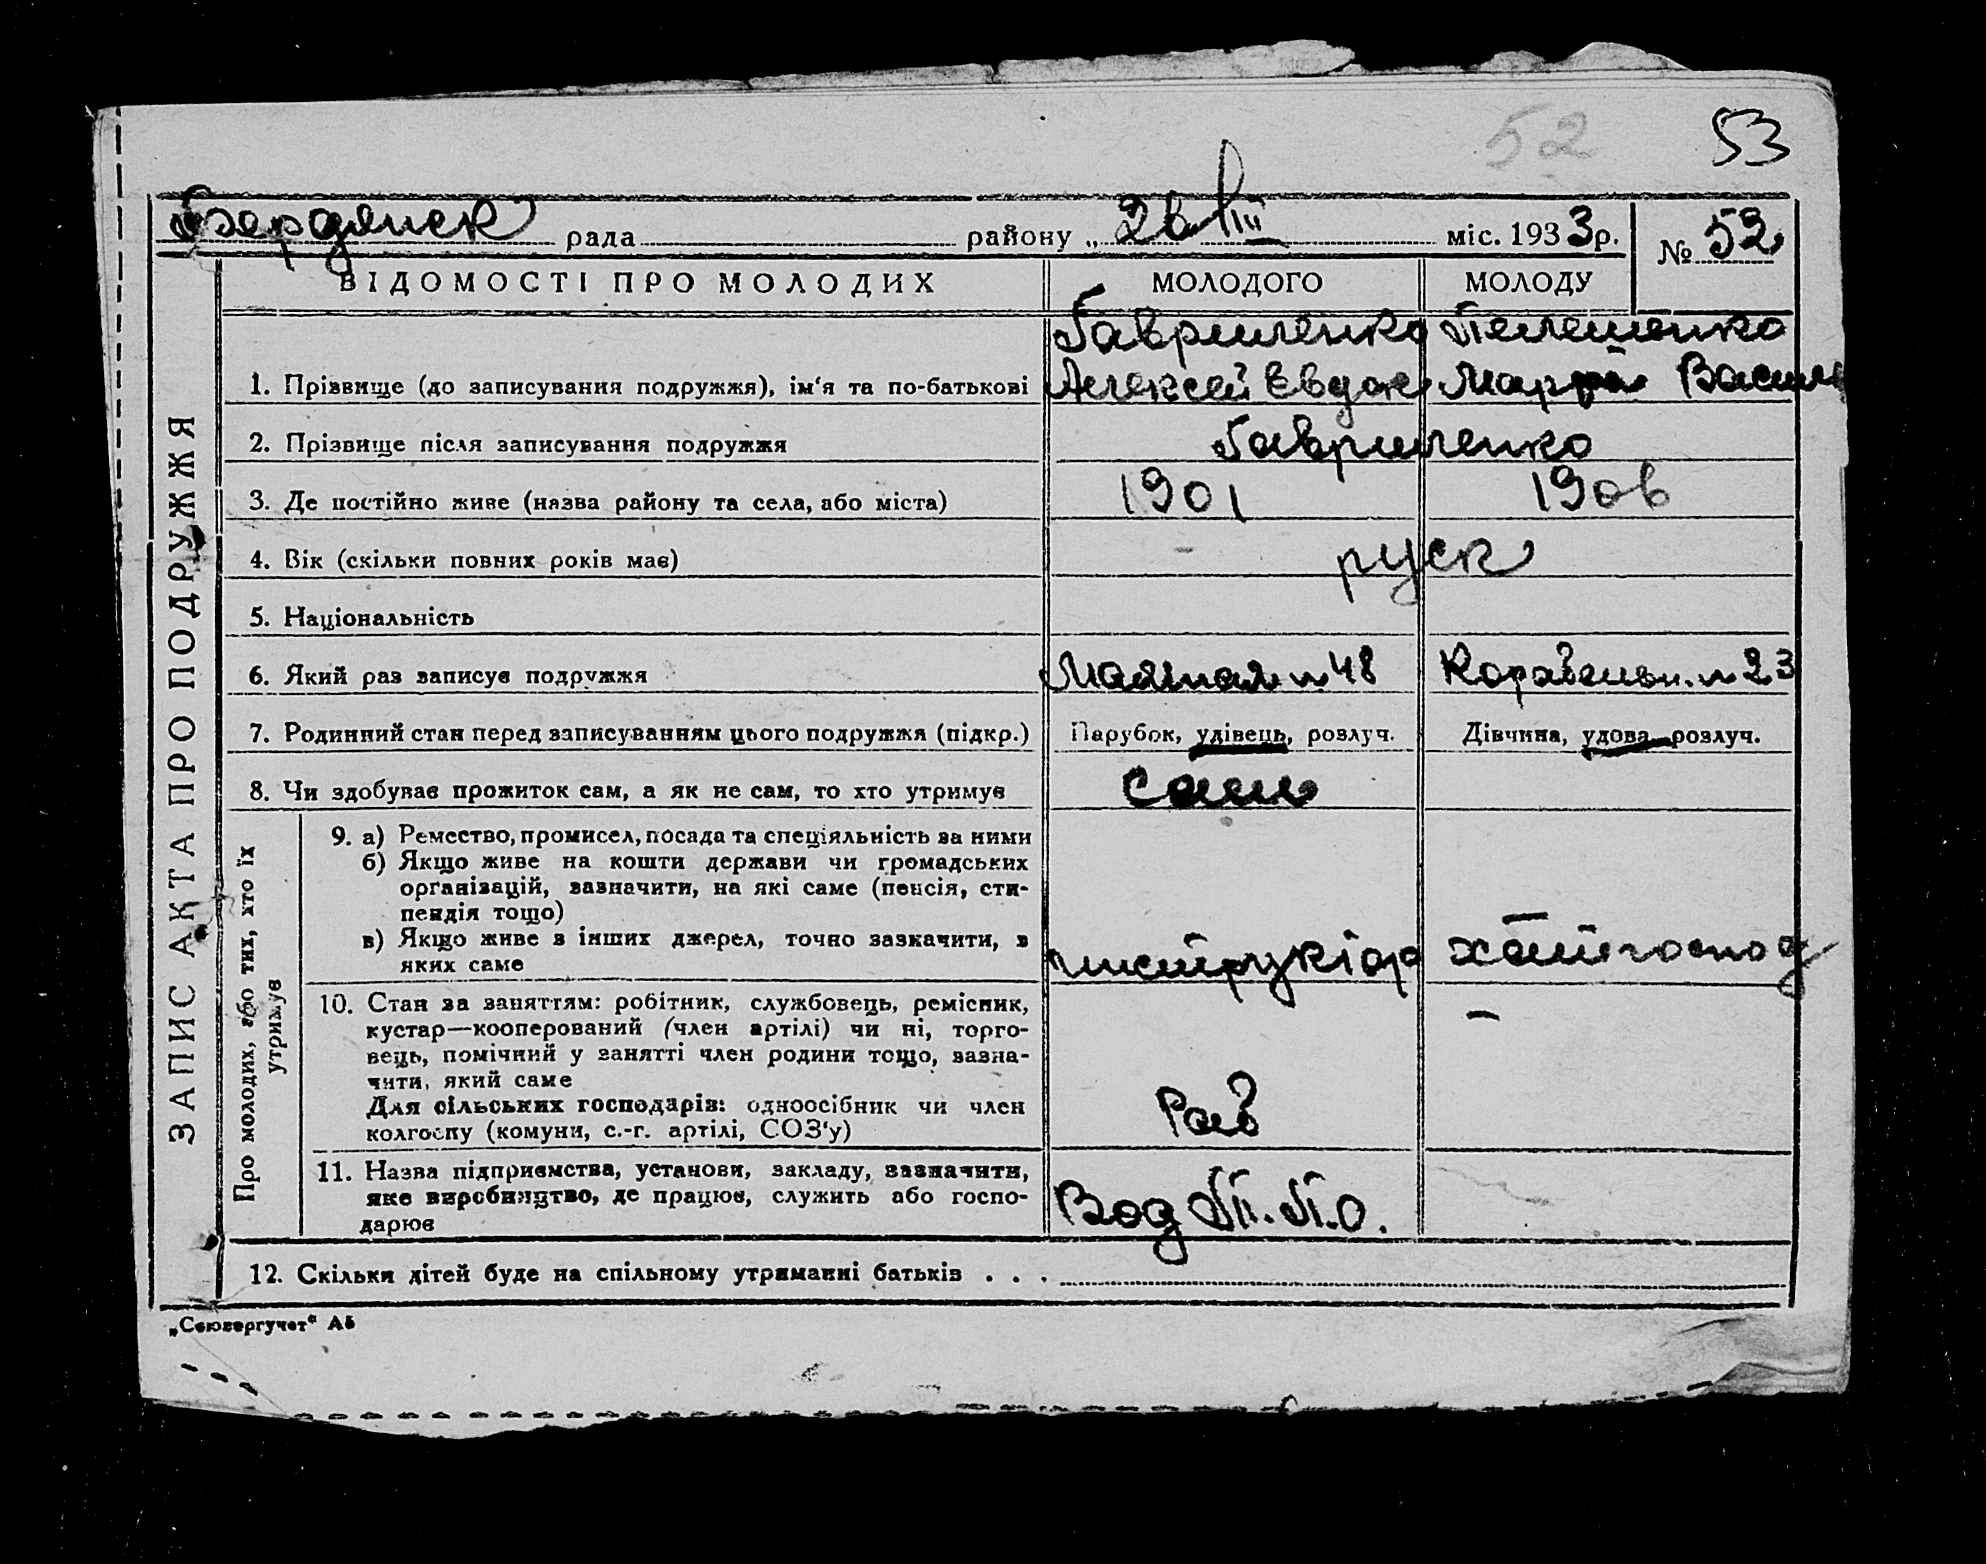 52 53
Бердянск рада району „26 III міс. 1933р. № 52
ВІДОМОСТІ ПРО МОЛОДИХ МОЛОДОГО МОЛОДУ
Гавриленко
1. Прізвище (до записування подружжя), ім‘я та по-батькові Алексей Евдок Василь
2. Прізвище після записування подружжя Гавриленко
3. Де постійно живе (назва району та села, або міста) 1901 1906
4. Вік (скільки повних років має) руск
5. Національність
6. Який раз записує подружжя Маячная № 48 № 23
7. Родинний стан перед записуванням цього подружжя (підкр.) Парубок, удівець, розлуч. Дівчина, удова розлуч.
8. Чи здобуває прожиток сам, а як не сам, то хто утримує сам
9. а) Ремество, промисел, посада та спеціяльність за ними
б) Якщо живе на кошти держави чи громадських
організацій, зазначити, на які саме (пенсія, сти-
пендія тощо)
в) Якщо живе з інших джерел, точно зазначити, з
яких саме инструктор хатнгоспод
10. Стан за заняттям: робітник, службовець, ремісник,
кустар—кооперований (член артілі) чи ні, торго-
вець, помічний у занятті член родини тощо, зазна-
чити, який саме
Для сільських господарів: одноосібник чи член
колгоспу (комуни, с.-г. артілі, СОЗ‘у) Раб
11. Назва підприємства, установи, закладу, зазначити,
яке виробництво, де працює, служить або госпо-
дарює Вод Т.П.О.
12. Скільки дітей буде на спільному утриманні батьків . . .
ЗАПИС АКТА ПРО ПОДРУЖЖЯ
Про молодих, або тих, хто їх
утримує
„Союзоргучет“ А5